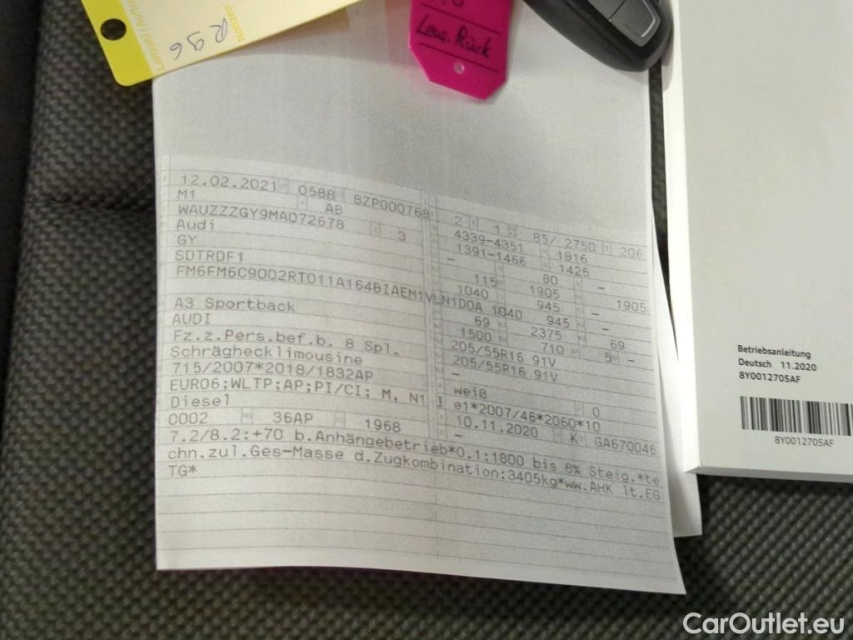 R96
Leas.Rück
12.02.2021 0588 8ZP000768 2 1 85/ 2750 206
M1 AB 4339-4351 1816
WAUZZZGY9MA072678 3 1391-1466 1425
Audi - 80 -
GY 115 1905 - 1905
SDTRDF1 1040 945 -
FM6FM6C9002RTD11A164BIAEM1VLN1D0A 1040 945 -
69 2375 69
A3 Sportback 1500 710 5 -
AUDI 205/55R16 91V
Fz.z.Pers.bef.b. 8 Spl. 205/55R16 91V
Schräghecklimousine -
715/2007*2018/1832AP weiß 0
EURO6;WLTP;AP;PI/CI; M, N1 I e1*2007/46*2060*10
Diesel 10.11.2020 K GA670046
0002 36AP 1968 -
7.2/8.2:+70 b.Anhängebetrieb*0.1:1800 bis 8% Steig.*te
chn.zul.Ges-Masse d.Zugkombination:3405kg*ww.AHK lt.EG
TG*
Betriebsanleitung
Deutsch 11.2020
8Y0012705AF
8Y0012705AF
CarOutlet.eu